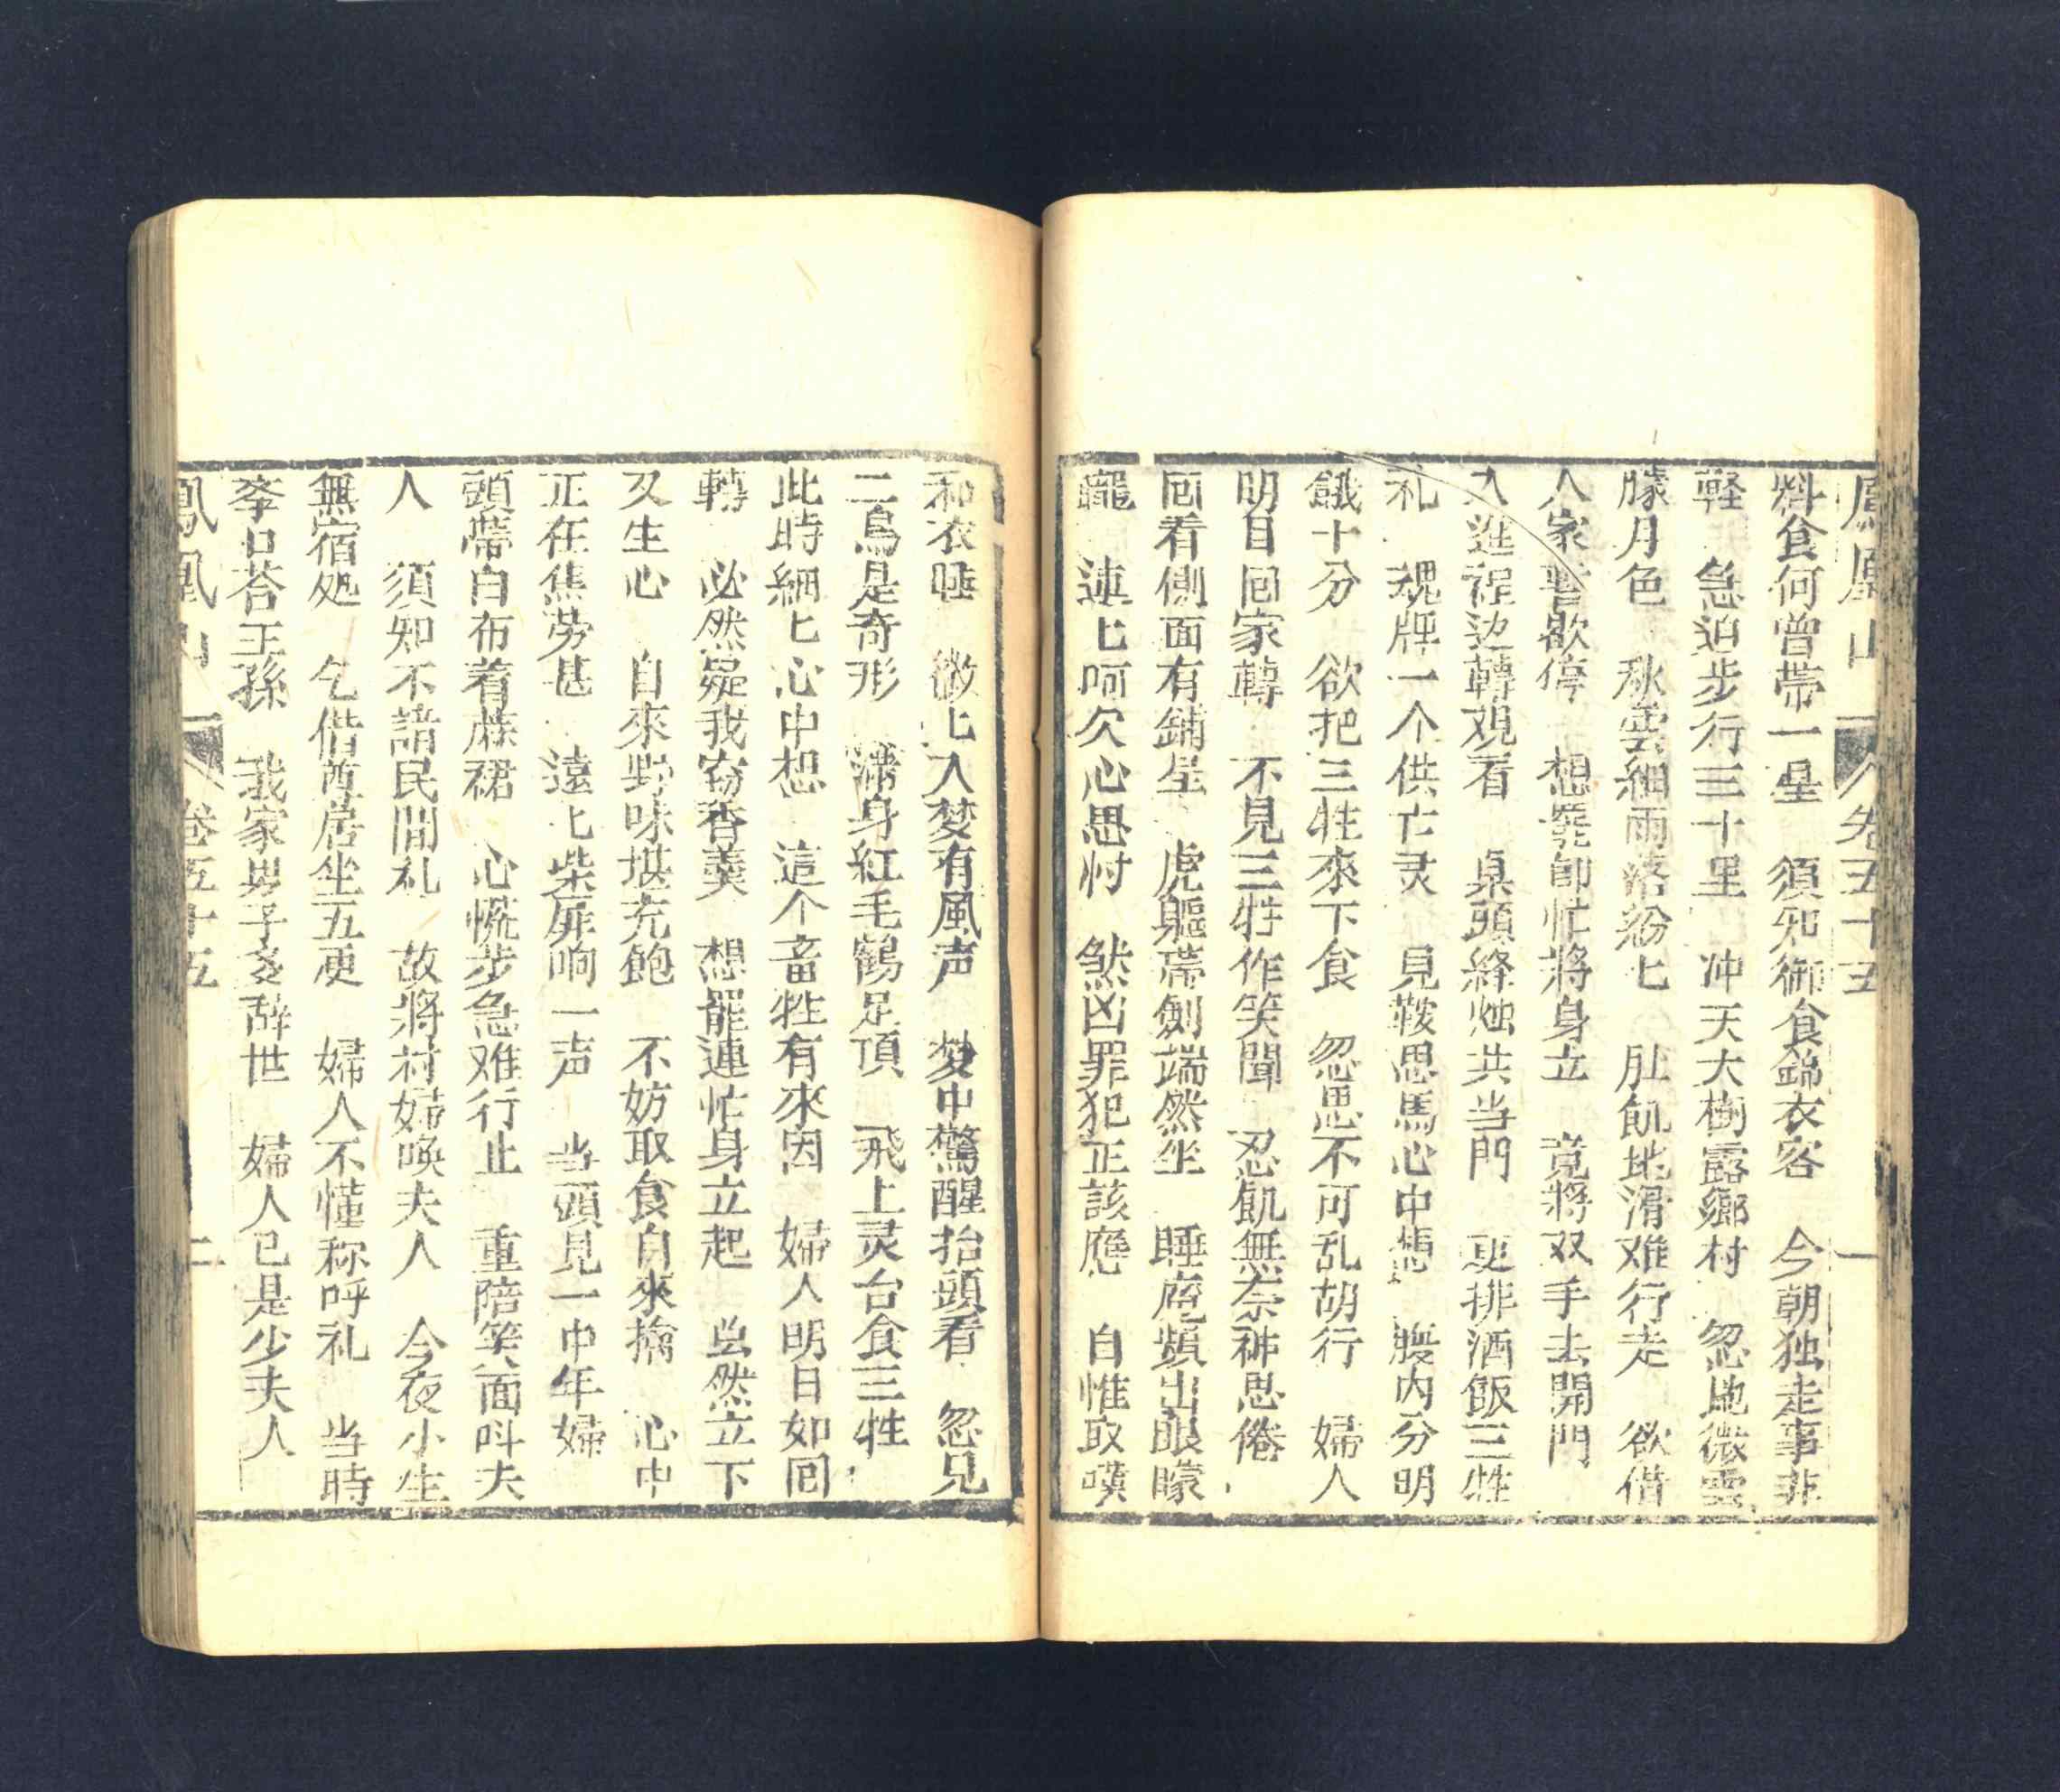 鳳凰山 卷五十五 一
料食何曾帶一星 須知御食錦衣客 今朝独走事非
軽 急迫步行三十里 冲天大樹露鄉村 忽地微雲
朦月色 秋雲細雨落紛匕 肚飢地滑难行走 欲借
人家暫歇停 想罷即忙將身立 竟將双手去開門
入進裡边轉观看 桌頭絳烛共当門 更排酒飯三牲
礼 魂牌一个供亡灵 見鞍思馬心中想 腹内分明
餓十分 欲把三牲來下食 忽思不可乱胡行 婦人
明日回家轉 不見三牲作笑聞 忍飢無奈神思倦
回看側面有鋪呈 虎軀帶劍端然坐 睡魔頻出眼矇
矓 連匕呵欠心思忖 然凶罪犯正該應 自惟取嘆
和衣睡 微匕入梦有風声 梦中驚醒抬頭看 忽見
二鳥是奇形 滿身紅毛鶴足頂 飛上灵台食三牲
此時細匕心中想 這个畜牲有來因 婦人明日如回
轉 必然疑我窃香羹 想罷連忙身立起 当然立下
又生心 自來野味堪充飽 不妨取食自來擒 心中
正在焦劳甚 遠匕柴扉响一声 当頭見一中年婦
頭帶白布着蔴裙 心慌步急难行止 重陪笑面叫夫
人 須知不諳民間礼 故將村婦喚夫人 今夜小生
無宿処 乞借尊居坐五更 婦人不懂称呼礼 当時
李口荅王孫 我家男子爻辞世 婦人已是少夫人
鳳凰山 卷五十五 二